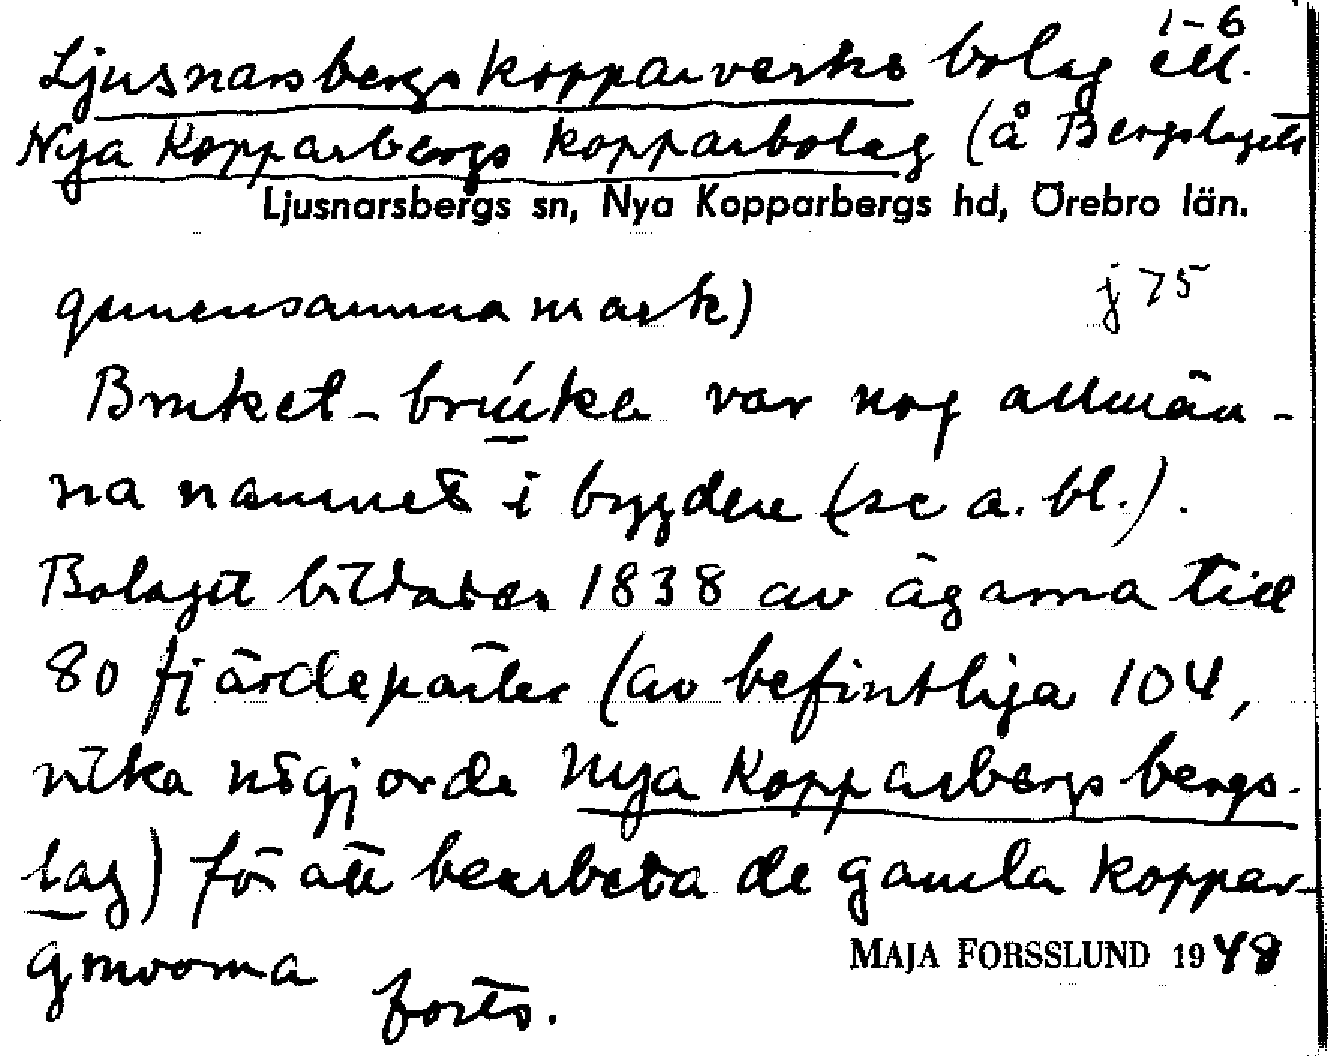 1-6
Ljusnarsbergs kopparverks bolag ell.
Nya Kopparbergs kopparbolag (å Bergslagets
Ljusnarsbergs sn, Nya Kopparbergs hd, Örebro län.
gemensamma mark) j 75
Bruket - brúka var nog allmän-
na namnet i bygden (se a. bl.).
Bolaget bildades 1838 av ägarna till
80 fjärdeparter (av befintliga 104,
vilka utgjorde Nya Kopparbergs bergs-
lag) för att bearbeta de gamla koppar-
gruvorna forts.
MAJA FORSSLUND 1948